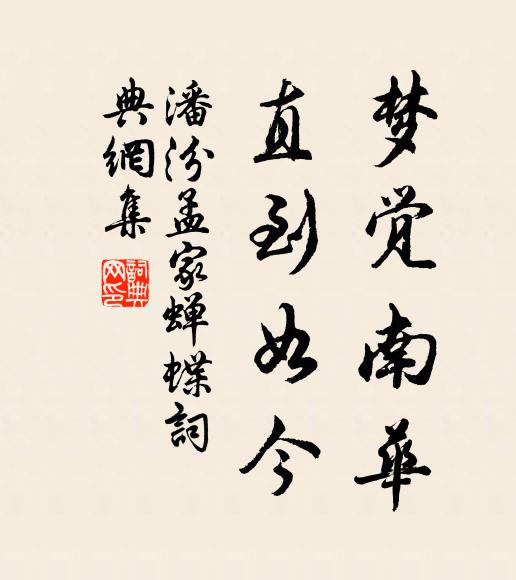 梦觉南华
直到如今
潘汾孟家蝉蝶詞
典網集
詞典
网印